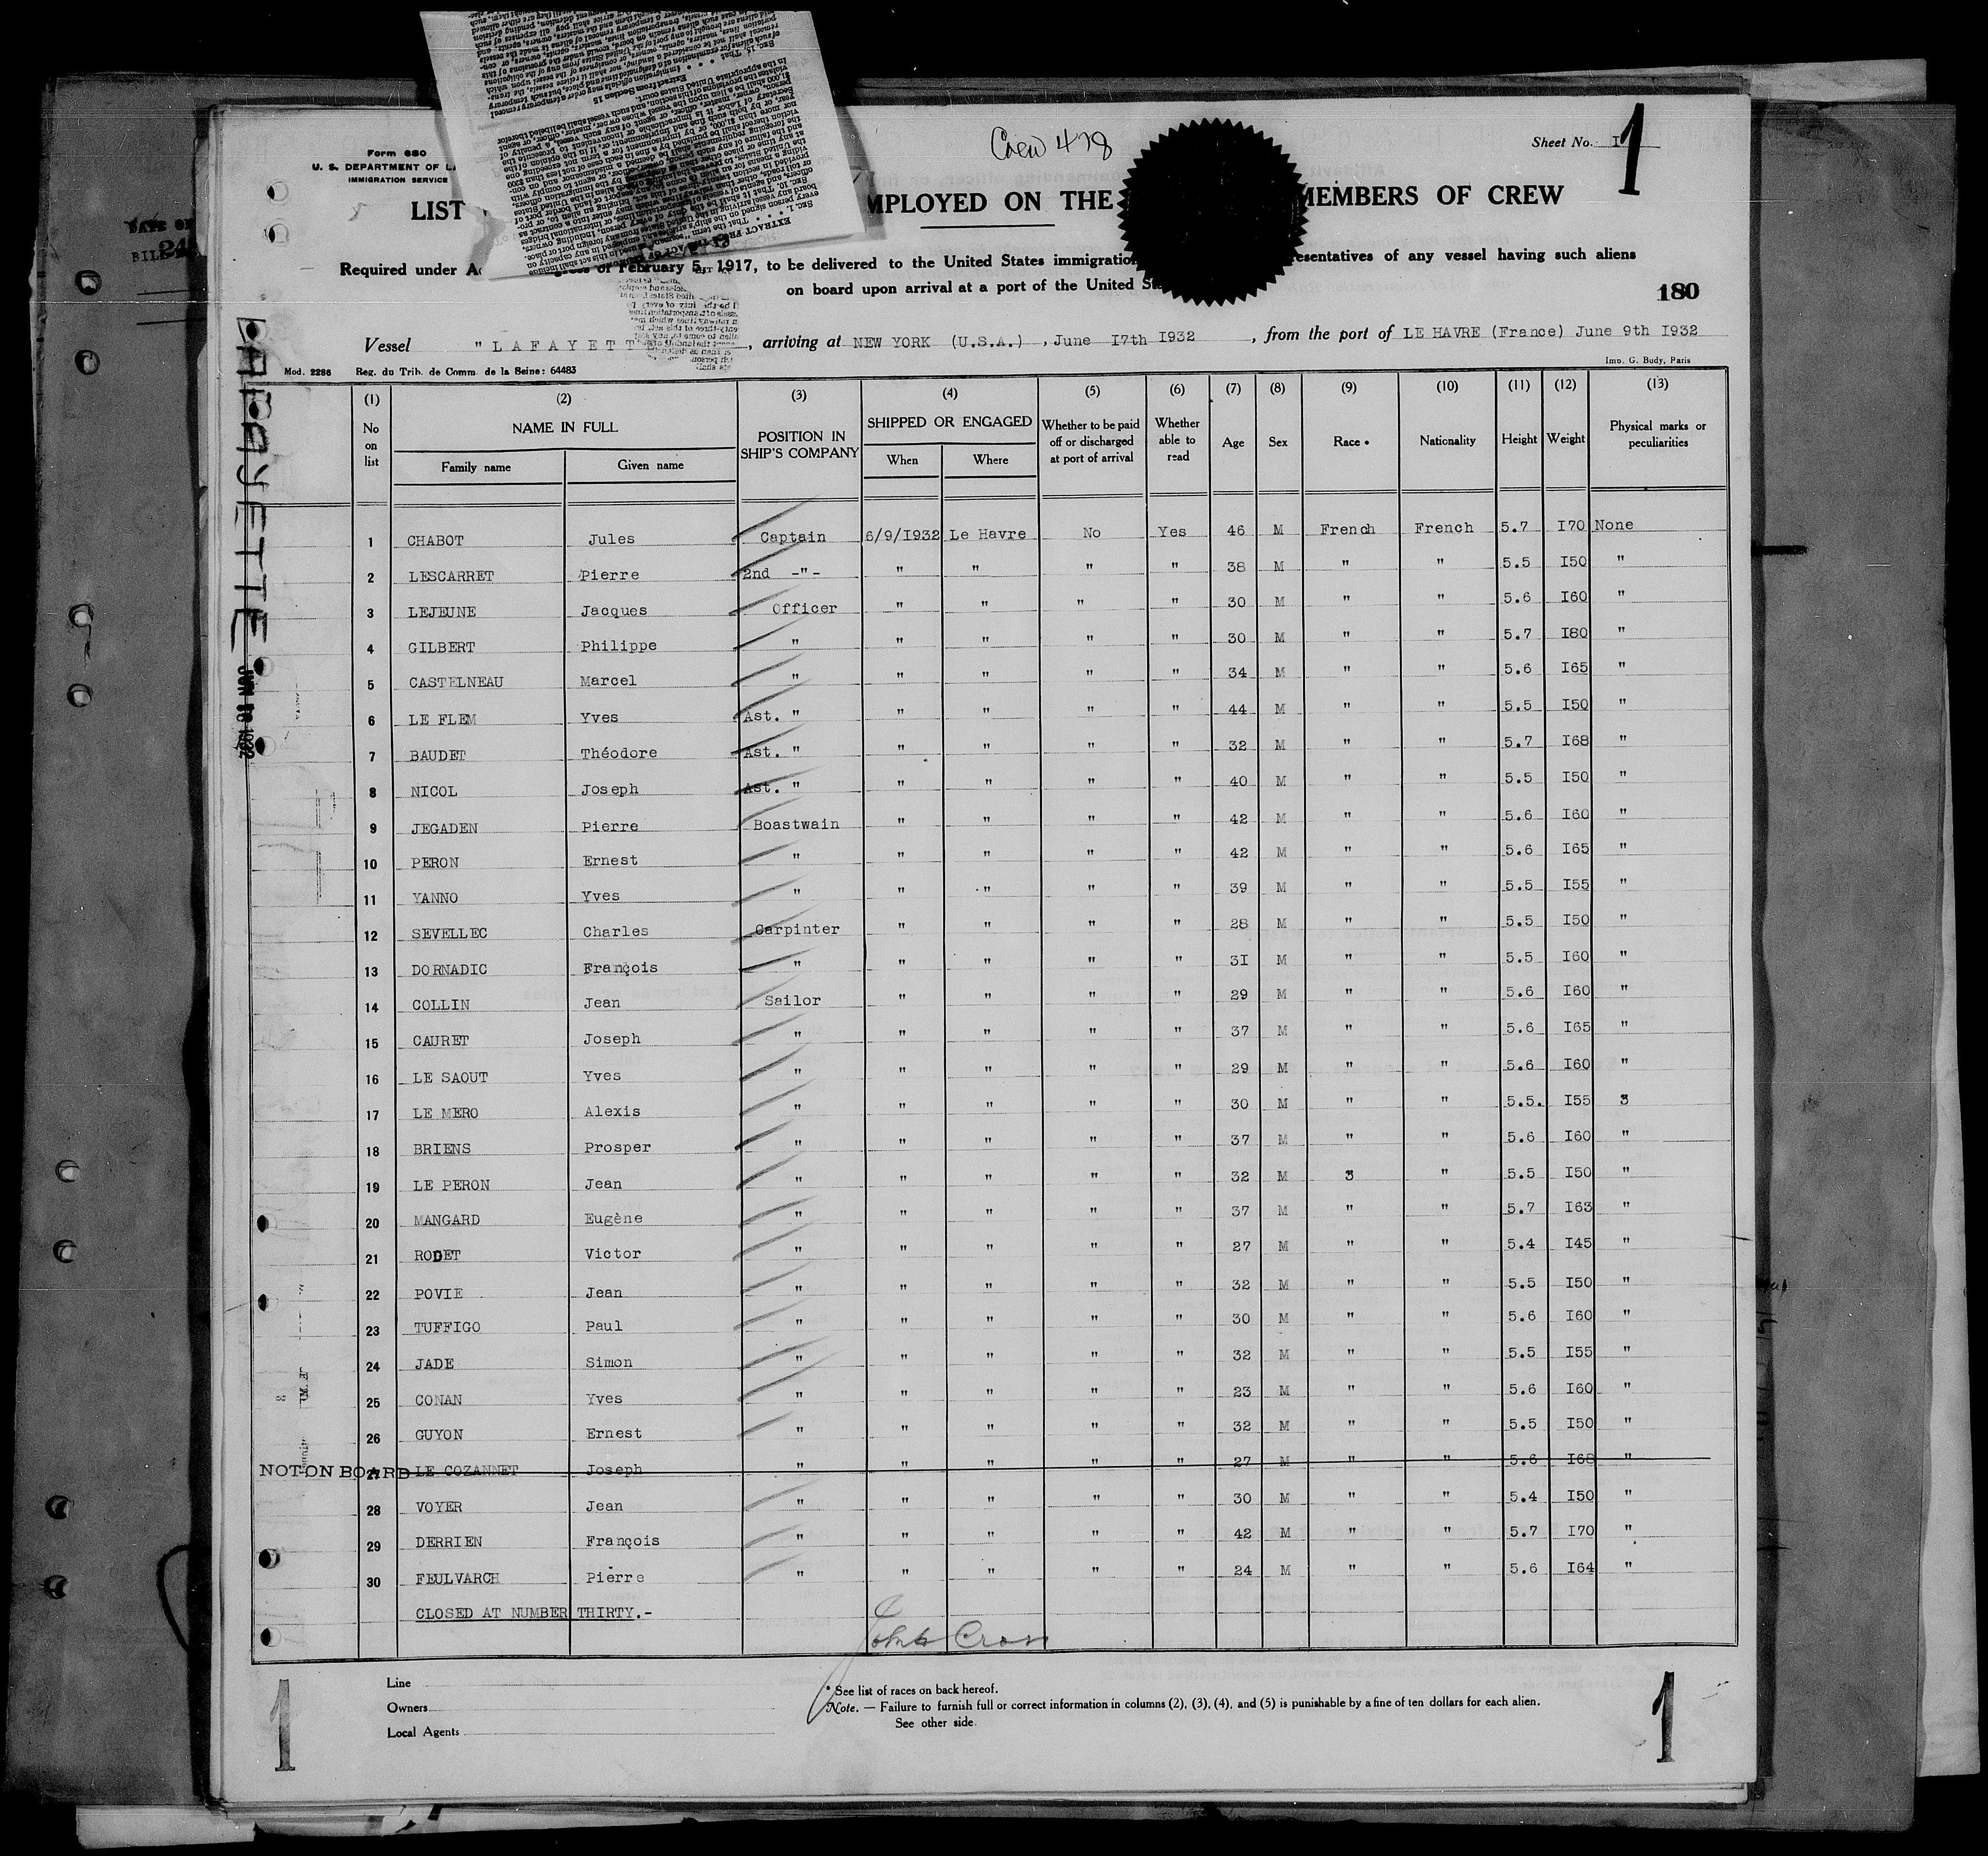 Form 680
U. S. DEPARTMENT OF
IMMIGRATION SERVICE
Crew 478
Sheet No. I
1
LIST MPLOYED ON THE MEMBERS OF CREW
Required under of February 5, 1917, to be delivered to the United States immigration esentatives of any vessel having such aliens
on board upon arrival at a port of the United
180
Vessel " LAFAYETTE , arriving at NEW YORK (U.S.A.) , June I7th I932 , from the port of LE HAVRE (France) June 9th I932
Mod. 2286 Reg. du Trib. de Comm. de la Seine: 64483 Imp. G. Budy, Paris
LAFAYETTE
(1) (2) (3) (4) (5) (6) (7) (8) (9) (10) (11) (12) (13)
No on list NAME IN FULL POSITION IN SHIP'S COMPANY SHIPPED OR ENGAGED Whether to be paid off or discharged at port of arrival Whether able to read Age Sex Race • Nationality Height Weight Physical marks or peculiarities
Family name Given name When Where
1 CHABOT Jules Captain 6/9/I932 Le Havre No Yes 46 M French French 5.7 I70 None
2 LESCARRET Pierre 2nd -"- " " " " 38 M " " 5.5 I50 "
3 LEJEUNE Jacques Officer " " " " 30 M " " 5.6 I60 "
4 GILBERT Philippe " " " " " 30 M " " 5.7 I80 "
5 CASTELNEAU Marcel " " " " " 34 M " " 5.6 I65 "
6 LE FLEM Yves Ast. " " " " " 44 M " " 5.5 I50 "
7 BAUDET Théodore Ast. " " " " " 32 M " " 5.7 I68 "
8 NICOL Joseph Ast. " " " " " 40 M " " 5.5 I50 "
9 JEGADEN Pierre Boastwain " " " " 42 M " " 5.6 I60 "
10 PERON Ernest " " " " " 42 M " " 5.6 I65 "
11 YANNO Yves " " " " " 39 M " " 5.5 I55 "
12 SEVELLEC Charles Carpinter " " " " 28 M " " 5.5 I50 "
13 DORNADIC François " " " " " 3I M " " 5.5 I60 "
14 COLLIN Jean Sailor " " " " 29 M " " 5.6 I60 "
15 CAURET Joseph " " " " " 37 M " " 5.6 I65 "
16 LE SAOUT Yves " " " " " 29 M " " 5.6 I60 "
17 LE MERO Alexis " " " " " 30 M " " 5.5. I55 3
18 BRIENS Prosper " " " " " 37 M " " 5.6 I60 "
19 LE PERON Jean " " " " " 32 M 3 " 5.5 I50 "
20 MANGARD Eugène " " " " " 37 M " " 5.7 I63 "
21 RODET Victor " " " " " 27 M " " 5.4 I45 "
22 POVIE Jean " " " " " 32 M " " 5.5 I50 "
23 TUFFIGO Paul " " " " " 30 M " " 5.6 I60 "
24 JADE Simon " " " " " 32 M " " 5.5 I55 "
25 CONAN Yves " " " " " 23 M " " 5.6 I60 "
26 GUYON Ernest " " " " " 32 M " " 5.5 I50 "
NOT ON BOARD 27 LE COZANNET Joseph " " " " " 27 M " " 5.6 I68 "
28 VOYER Jean " " " " " 30 M " " 5.4 I50 "
29 DERRIEN François " " " " " 42 M " " 5.7 I70 "
30 FEULVARCH Pierre " " " " " 24 M " " 5.6 I64 "
CLOSED AT NUMBER THIRTY.-
John Cron
Line
Owners
Local Agents
• See list of races on back hereof.
Note. — Failure to furnish full or correct information in columns (2), (3), (4), and (5) is punishable by a fine of ten dollars for each alien.
See other side.
1
1